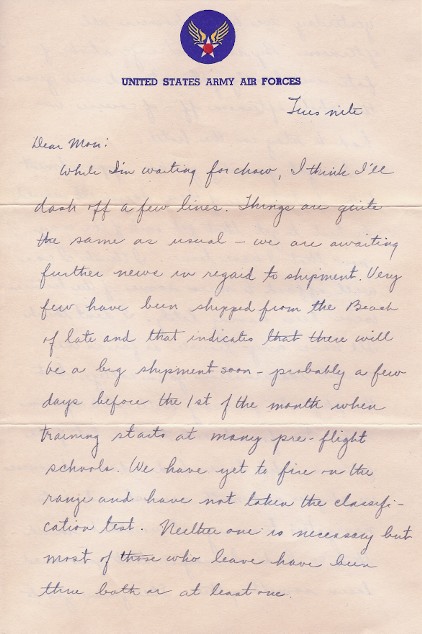 UNITED STATES ARMY AIR FORCES
Tues nite
Dear Mom:
While I'm waiting for chow, I think I'll
dash off a few lines. Things are quite
the same as usual – we are awaiting
further news in regard to shipment. Very
few have been shipped from the Beach
of late and that indicates that there will
be a big shipment soon – probably a few
days before the 1st of the month when
training starts at many pre-flight
schools. We have yet to fire on the
range and have not taken the classifi-
cation test. Neither one is necessary but
most of those who leave have been
thru both or at least one.